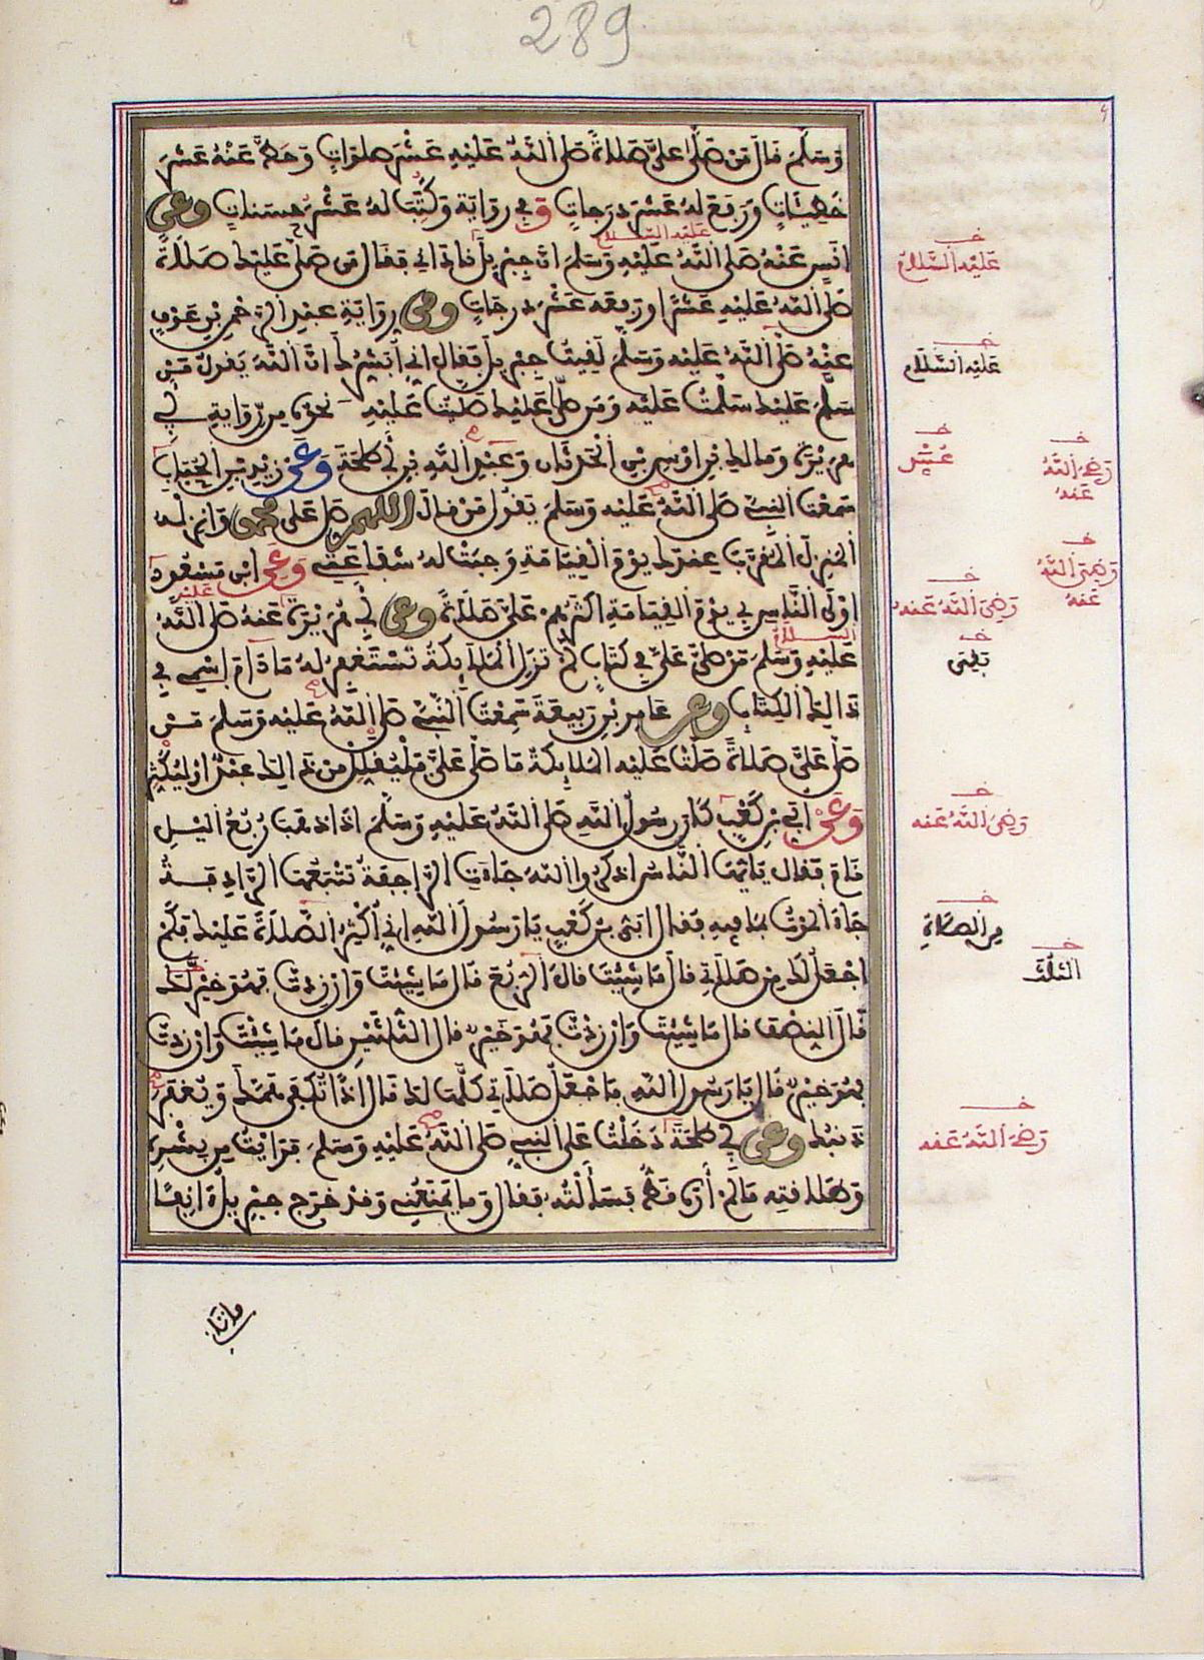 289
وَسَلَّمَ قَالَ مَنْ صَلَّى عَلَيَّ صَلَاةً صَلَّى اللَّهُ عَلَيْهِ عَشْرَ صلوَاتٍ وَحَطَّ عَنْهُ عَشْرَ
خَطِيئَاتٍ وَرَفَعَ لَهُ عَشْرَ دَرَجَاتٍ وَفِي رِوَايَة وَكُتِبَتْ لَهُ عَشْرُ حسَنَاتٍ وعن
أنَسٍ عَنْهُ صَلَّى اللَّهُ عَلَيْهِ وَسَلَّمَ أنَّ جِبْرِيلَ نَادَانِي فقَالَ مَن صَلَّى عَلَيْكَ صَلَاةً
عَلَيْهِ السَّلَامُ
صَلَّى اللَّهُ عَلَيْهِ عَشْرًا وَرَفعَه عَشْرَ دَرجَاتٍ ومن رِوَايَةِ عَبْدِ الرَّحْمنِ بْنِ عَوْفٍ
عَنْهُ صَلَّى اللَّهُ عَلَيْهِ وَسَلَّمَ لَقِيتُ جِبْرِيلَ فقَال لِي أُبَشِّرُكَ أنَّ اللَّهَ يَقُولُ مَنْ
سَلَّمَ عَلَيْكَ سَلَّمْتُ عَلَيْهِ وَمَن صَلَّى عَلَيْكَ صَلَّيْتُ عَلَيْهِ نحوه من رِّوَايَةِ أبِي
هُرَيْرَةَ وَمَالِكِ بْنِ أوْسِ بْنِ الحَدَثَانِ وَعُبَيْدِ اللَّهِ بْنِ أبِي طَلْحَةَ وَعَن زَيْدِ بْنِ الحُبَابِ
سَمِعْتُ النَّبِيَّ صَلَّى اللَّهُ عَلَيْهِ وَسَلَّمَ يَقُولُ مَنْ قَالَ اللهم صَلِّ عَلَى محمد وَأنزِلْهُ
المَنزِلَ المُقَرَّبَ عِندَكَ يَوْمَ القِيَامَةِ وَجَبَتْ لَهُ شَفَاعَتِي وَعَنِ ابْنِ مَسْعُودٍ
أوْلَى النَّاسِ بِي يَوْمَ القِيَامَةِ أكْثَرُهُمْ عَلَيَّ صَلَاةً وعن أبِي هُرَيْرَةَ عَنْهُ صَلَّى اللَّهُ
عَلَيْهِ السلام
عَلَيْهِ وَسَلَّمَ مَنْ صَلَّى عَلَيَّ فِي كِتَابٍ لَمْ تَزَلِ المَلَائِكَةُ تَسْتَغْفِرُ لَهُ مَا دَامَ اسْمِي فِي
ذَالِكَ الكِتَابِ وعن عَامِرِ بْنِ رَبِيعَةَ سَمِعْتُ النَّبِيَّ صَلَّى اللَّهُ عَلَيْهِ وَسَلَّمَ مَنْ
صَلَّى عَلَيَّ صَلَاةً صَلَّتْ عَلَيْهِ المَلَائِكَةُ مَا صَلَّى عَلَيَّ فَلْيُقْلِلْ مِنْ ذَالِكَ عَبْدٌ أوْ لِيُكْثِرْ
وَعَنْ أُبَيِّ بْنِ كَعْبٍ كَانَ رَسُولُ اللَّهِ صَلَّى اللَّهُ عَلَيْهِ وَسَلَّمَ إذَا ذَهَبَ رُبُعُ اليْلِ
قَامَ فقَال يَا أيُّهَا النَّاسُ اذكُرُوا اللَّهَ جَاءَتِ الرَّاجِفَةُ تَتْبَعُهَا الرَّادِفَةُ
جَاءَ المَوْتُ بِمَا فِيهِ فقَال أُبَيُّ بْنُ كَعْبٍ يَا رَسُولَ اللَّهِ إنِّي أُكْثِرُ الصَّلَاةَ عَلَيْكَ فَكَمْ
أجْعَلُ لَكَ مِن صَلَاتِي قالَ مَا شِيْتَ قالَ الرُّبُعَ قَالَ مَا شِيْتَ وَإن زِدْتَ فَهُوَ خَيْرٌ لَّكَ
قَالَ النِّصْفَ قالَ مَا شِيْتَ وَإن زِدْتَ فَهُوَ خَيْرٌ قال الثُّلُثَيْنِ قالَ مَا شِيْتَ وَإن زِدْتَ
فَهُوَ خَيْرٌ قَال يَا رَسُولَ اللَّهِ فَأجْعَلُ صَلَاتِي كُلَّهَا لَكَ قَالَ إذًا تُكْفَى هَمَّكَ وَيُغْفَرُ
ذَنبُكَ وعن أبِي طَلْحَةَ دَخَلْتُ عَلَى النَّبِيِّ صَلَّى اللَّهُ عَلَيْهِ وَسَلَّمَ فَرَأيْتُ مِن بِشْرِهِ
وَطَلَاقَتِهِ مَا لَمْ أرَهُ قَطُّ فَسَألْتُهُ فقَال وَمَا يَمْنَعُنِي وَقَدْ خَرَجَ جِبْرِيلُ آنِفًا
عَلَيْهِ السَّلَامُ
عَلَيْهِ السَّلَام
رَضِيَ اللَّهُ عَنْهُ
رَضِيَ اللَّهُ عَنْهُ
رَضِيَ اللَّهُ عَنْهُ
رَضِيَ اللَّهُ عَنْه
مِن الصَّلَاةِ
الثُلُثَ
رَضِيَ اللَّهُ عَنه
فأتا